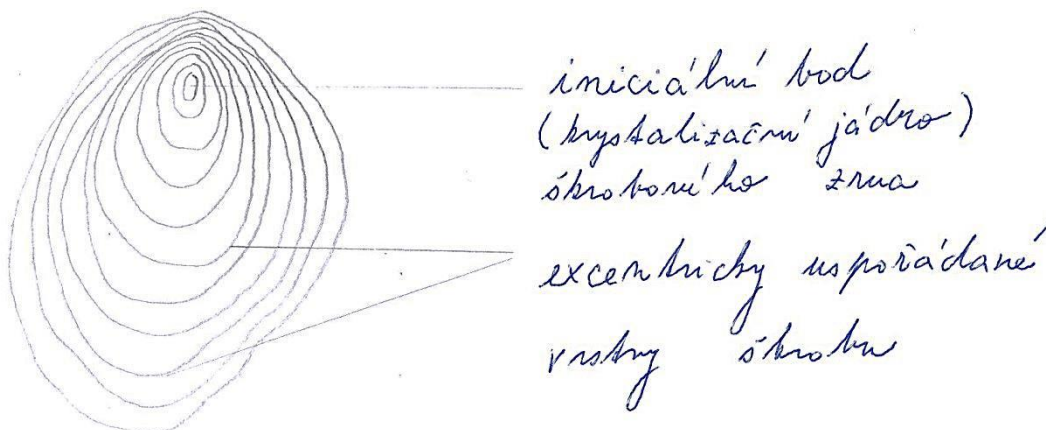 iniciální bod
(krystalizační jádro)
škrobového zrna
excentricky uspořádané
vrstvy škrobu